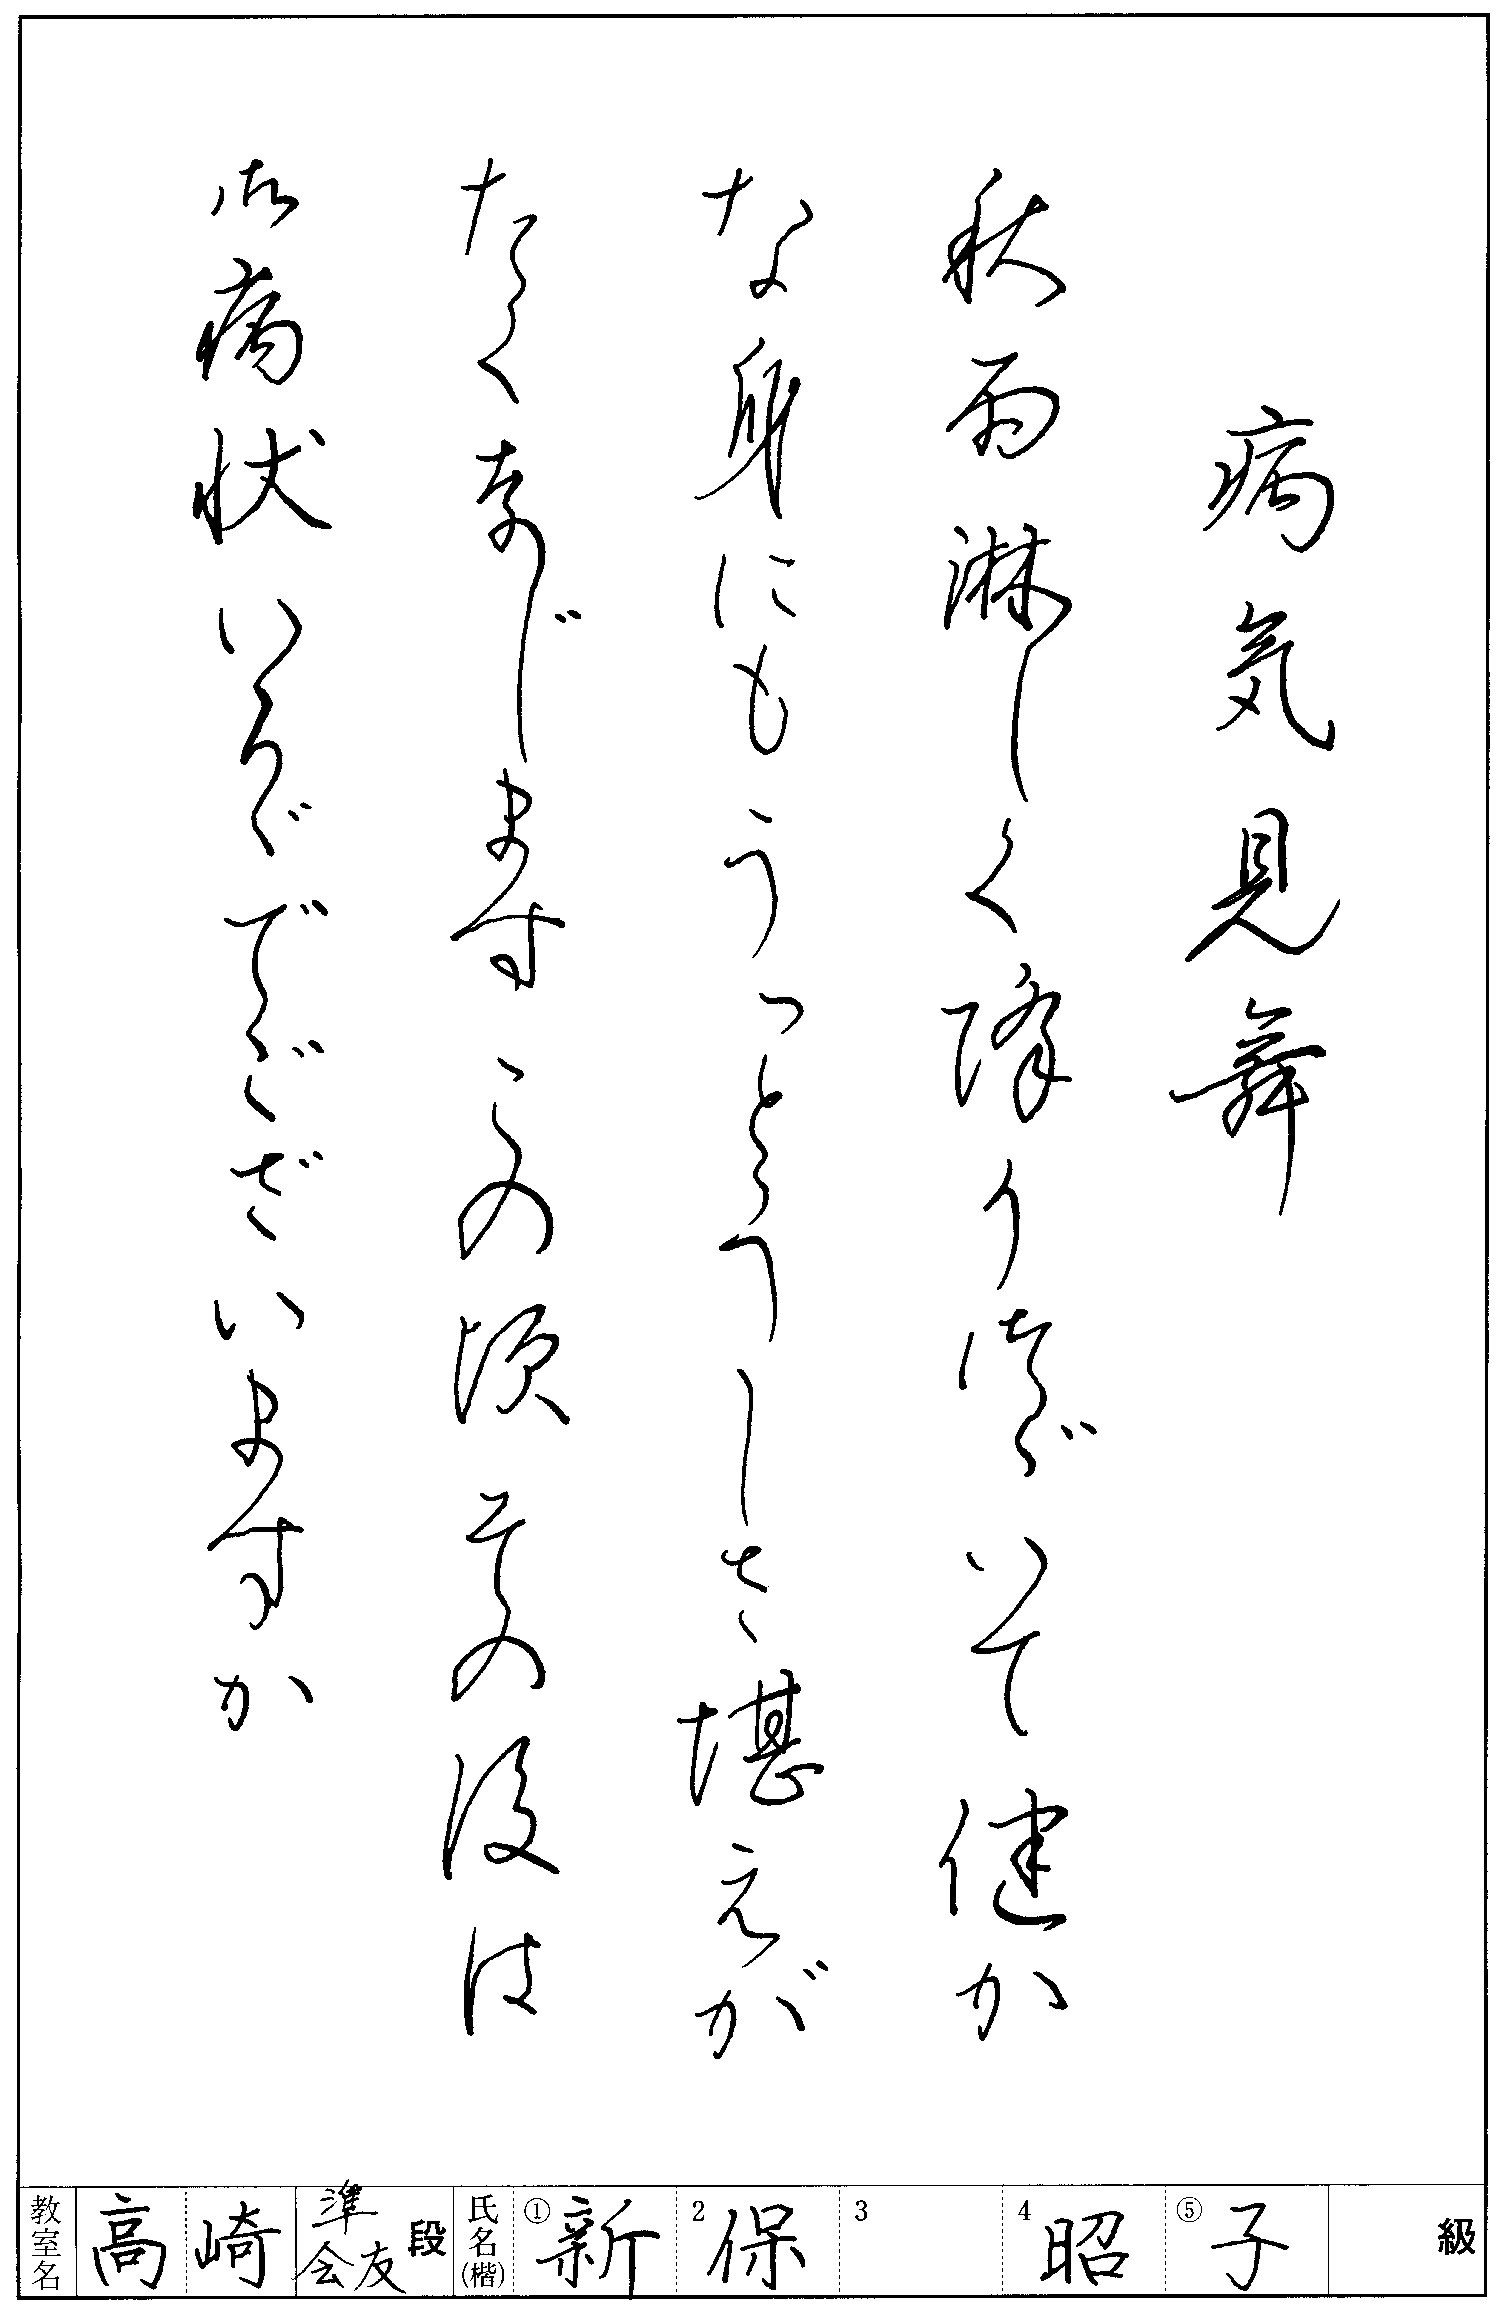 病気見舞
秋雨淋しく降りつづいて健か
な身にもうっとうしさ堪えが
たく存じますこの頃その後は
御病状いかゞでございますか
教室名 高崎 準会友 段 氏名(楷) ①新 2保 3 4昭 ⑤子 級